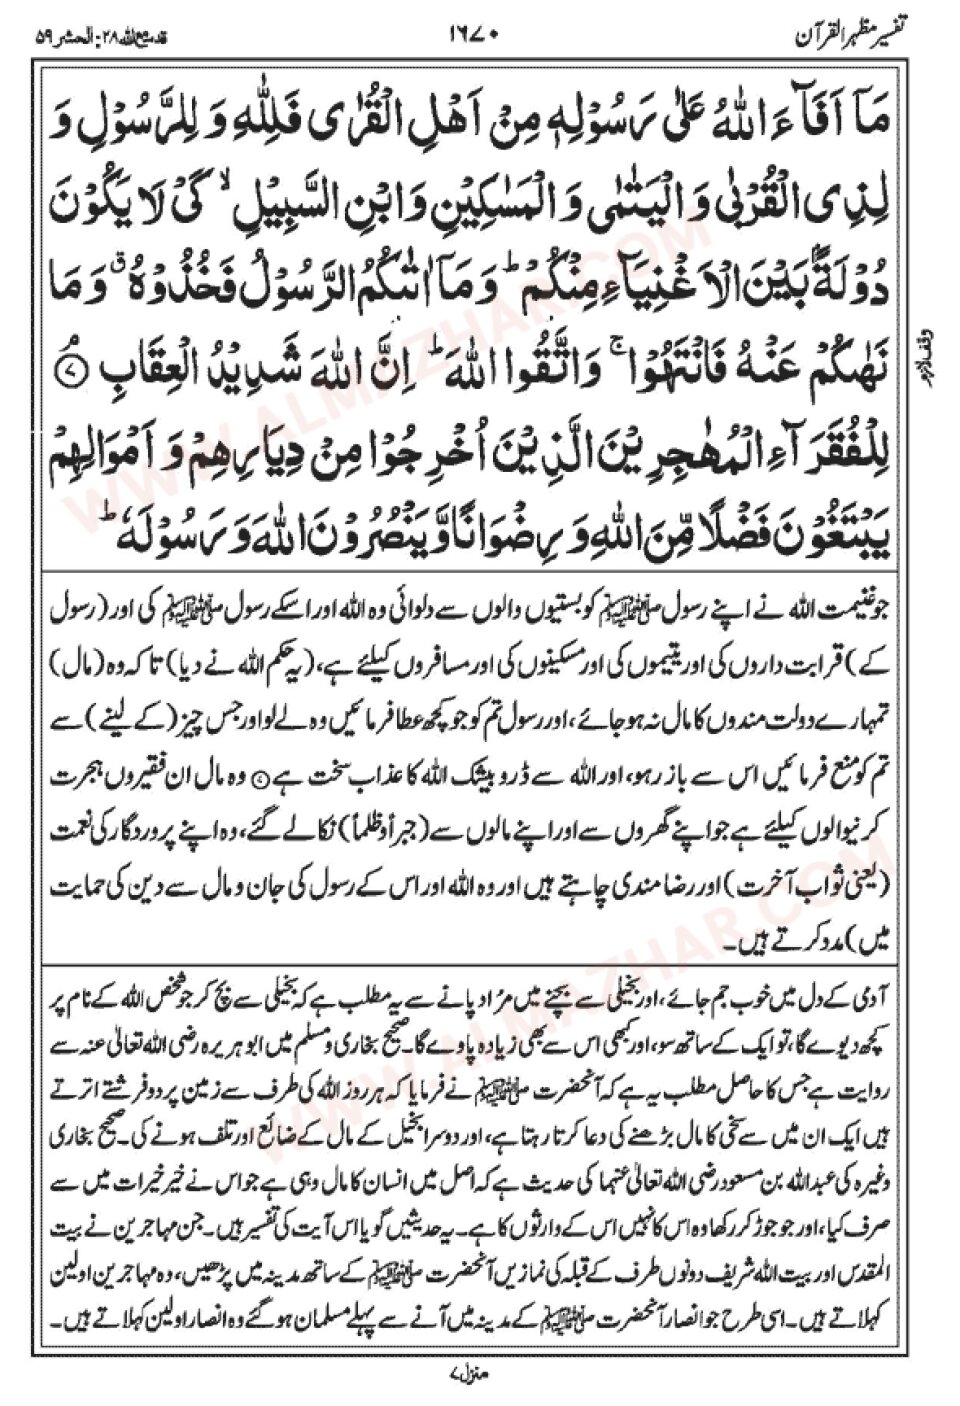 تفسیر مظہر القرآن
۱۶۷۰
قد سمع اللہ ۲۸: الحشر ۵۹
مَآ اَفَآءَ اللّٰهُ عَلٰى رَسُوْلِهٖ مِنْ اَهْلِ الْقُرٰى فَلِلّٰهِ وَ لِلرَّسُوْلِ وَ
لِذِى الْقُرْبٰى وَ الْيَتٰمٰى وَ الْمَسٰكِيْنِ وَ ابْنِ السَّبِيْلِ ۙ كَىْ لَا يَكُوْنَ
دُوْلَةًۢ بَيْنَ الْاَغْنِيَآءِ مِنْكُمْ ؕ وَ مَاۤ اٰتٰىكُمُ الرَّسُوْلُ فَخُذُوْهُ ۗ وَ مَا
نَهٰىكُمْ عَنْهُ فَانْتَهُوْا ۚ وَ اتَّقُوا اللّٰهَ ؕ اِنَّ اللّٰهَ شَدِيْدُ الْعِقَابِ ۘ ﴿۷﴾
وقف لازم
لِلْفُقَرَآءِ الْمُهٰجِرِيْنَ الَّذِيْنَ اُخْرِجُوْا مِنْ دِيَارِهِمْ وَ اَمْوَالِهِمْ
يَبْتَغُوْنَ فَضْلًا مِّنَ اللّٰهِ وَ رِضْوَانًا وَّ يَنْصُرُوْنَ اللّٰهَ وَ رَسُوْلَهٗ ؕ
جو غنیمت اللہ نے اپنے رسول ﷺ کو بستیوں والوں سے دلوائی وہ اللہ اور اسکے رسول ﷺ کی اور (رسول
کے) قرابت داروں کی اور یتیموں کی اور مسکینوں کی اور مسافروں کیلئے ہے، (یہ حکم اللہ نے دیا) تاکہ وہ (مال)
تمہارے دولت مندوں کا مال نہ ہو جائے، اور رسول تم کو جو کچھ عطا فرمائیں وہ لے لو اور جس چیز (کے لینے) سے
تم کو منع فرمائیں اس سے باز رہو، اور اللہ سے ڈرو بیشک اللہ کا عذاب سخت ہے ﴿۷﴾ وہ مال ان فقیروں ہجرت
کرنیوالوں کیلئے ہے جو اپنے گھروں سے اور اپنے مالوں سے (جبراً و ظلماً) نکالے گئے، وہ اپنے پروردگار کی نعمت
(یعنی ثواب آخرت) اور رضامندی چاہتے ہیں اور وہ اللہ اور اس کے رسول کی جان و مال سے دین کی حمایت
میں) مدد کرتے ہیں۔
آدمی کے دل میں خوب جم جائے، اور بخیلی سے بچنے میں مراد پانے سے یہ مطلب ہے کہ بخیلی سے بچ کر جو شخص اللہ کے نام پر
کچھ دیوے گا، تو ایک کے ساتھ سو، اور کبھی اس سے بھی زیادہ پاوے گا۔ صحیح بخاری و مسلم میں ابو ہریرہ رضی اللہ تعالیٰ عنہ سے
روایت ہے جس کا حاصل مطلب یہ ہے کہ آنحضرت ﷺ نے فرمایا کہ ہر روز اللہ کی طرف سے زمین پر دو فرشتے اترتے
ہیں ایک ان میں سے سخی کا مال بڑھنے کی دعا کرتا رہتا ہے، اور دوسرا بخیل کے مال کے ضائع اور تلف ہونے کی۔ صحیح بخاری
وغیرہ کی عبداللہ بن مسعود رضی اللہ تعالیٰ عنہما کی حدیث ہے کہ اصل میں انسان کا مال وہی ہے جو اس نے خیر خیرات میں سے
صرف کیا، اور جو جوڑ کر رکھا وہ اس کا نہیں اس کے وارثوں کا ہے۔ یہ حدیثیں گویا اس آیت کی تفسیر ہیں۔ جن مہاجرین نے بیت
المقدس اور بیت اللہ شریف دونوں طرف کے قبلہ کی نمازیں آنحضرت ﷺ کے ساتھ مدینہ میں پڑھیں، وہ مہاجرین اولین
کہلاتے ہیں۔ اسی طرح جو انصار آنحضرت ﷺ کے مدینہ میں آنے سے پہلے مسلمان ہو گئے وہ انصار اولین کہلاتے ہیں۔
منزل ۷
WWW.ALMAZHAR.COM
WWW.ALMAZHAR.COM